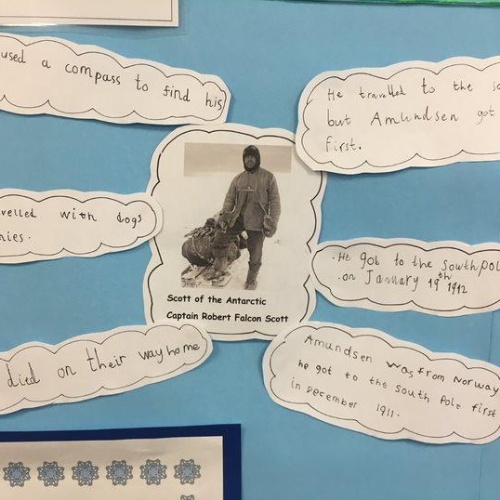 used a compass to find his
velled with dogs
nies.
died on their way home
Scott of the Antarctic
Captain Robert Falcon Scott
He travelled to the so
but Amundsen got
first.
.He got to the southpol
.on January 19th 1912
Amundsen was from Norway
he got to the south Pole first
in December 1911.